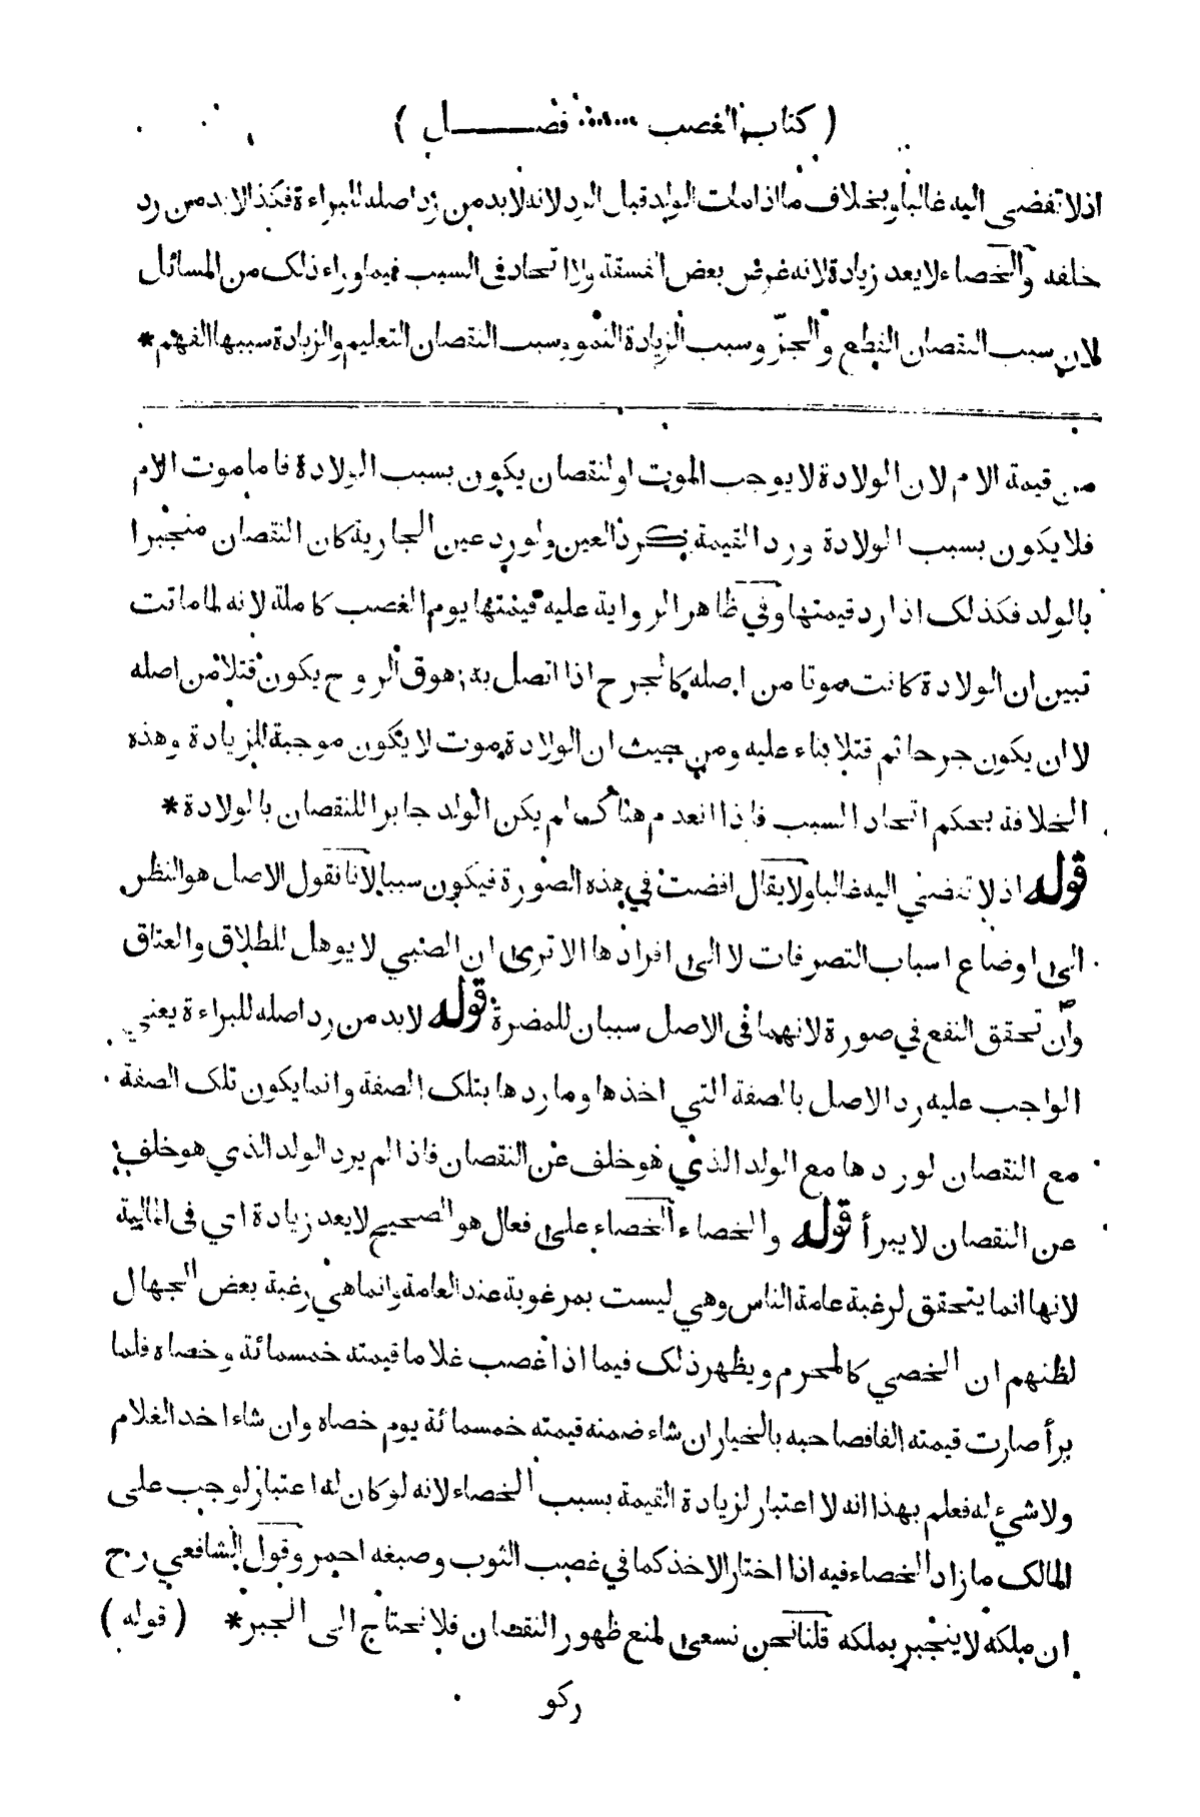 ( كتاب الغصب ...... فصل )
اذ لا تفضى اليه غالبا وبخلاف ما اذا مات الولد قبل الرد لانه لا بد من رد اصله للبراءة فكذا لابد من رد
خلفه والخصاء لا يعد زيادة لانه غرض بعض الفسقة ولا اتحاد فى السبب فيما وراء ذلك من المسائل
لان سبب النقصان القطع والجزّ وسبب الزيادة النمو وسبب النقصان التعليم والزيادة سببها الفهم *
من قيمة الام لان الولادة لا يوجب الموت اولنقصان يكون بسبب الولادة فاما موت الام
فلا يكون بسبب الولادة ورد القيمة كرد العين ولو رد عين الجارية كان النقصان منجبرا
بالولد فكذلك اذا رد قيمتها وفي ظاهر الرواية عليه قيمتها يوم الغصب كاملة لانه لما ماتت
تبين ان الولادة كانت موتا من اصله كالجرح اذا اتصل به زهوق الروح يكون قتلا من اصله
لا ان يكون جرحا ثم قتلا بناء عليه ومن حيث ان الولادة موت لا يكون موجبة للزيادة وهذه
الخلافة بحكم اتحاد السبب فاذا انعدم هناك لم يكن الولد جابرا للنقصان بالولادة *
قوله اذ لا تفضي اليه غالبا ولا يقال افضت في هذه الصورة فيكون سببا لانا نقول الاصل هو النظر
الى اوضاع اسباب التصرفات لا الى افرادها الا ترى ان الصبي لا يوهل للطلاق والعتاق
وان تحقق النفع في صورة لانهما فى الاصل سببان للمضرة قوله لا بد من رد اصله للبراءة يعني
الواجب عليه رد الاصل بالصفة التي اخذها وما ردها بتلك الصفة وانما يكون تلك الصفة
مع النقصان لو ردها مع الولد الذي هو خلف عن النقصان فاذا لم يرد الولد الذي هو خلف
عن النقصان لا يبرأ قوله والخصاء الخصاء على فعال هو الصحيح لا يعد زيادة اي فى المالية
لانها انما يتحقق لرغبة عامة الناس وهي ليست بمرغوبة عند العامة وانما هي رغبة بعض الجهال
لظنهم ان الخصي كالمحرم ويظهر ذلك فيما اذا غصب غلاما قيمته خمسمائة وخصاه فلما
برأ صارت قيمته الفا فصاحبه بالخيار ان شاء ضمنه قيمته خمسمائة يوم خصاه وان شاء اخد الغلام
ولا شيء له فعلم بهذا انه لا اعتبار لزيادة القيمة بسبب الخصاء لانه لو كان له اعتبار لوجب على
المالك ما زاد الخصاء فيه اذا اختار الاخذ كما في غصب الثوب وصبغه احمر وقول الشافعي رح
ان ملكه لا ينجبر بملكه قلنا نحن نسعى لمنع ظهور النقصان فلا نحتاج الى الجبر * ( قوله )
ركو